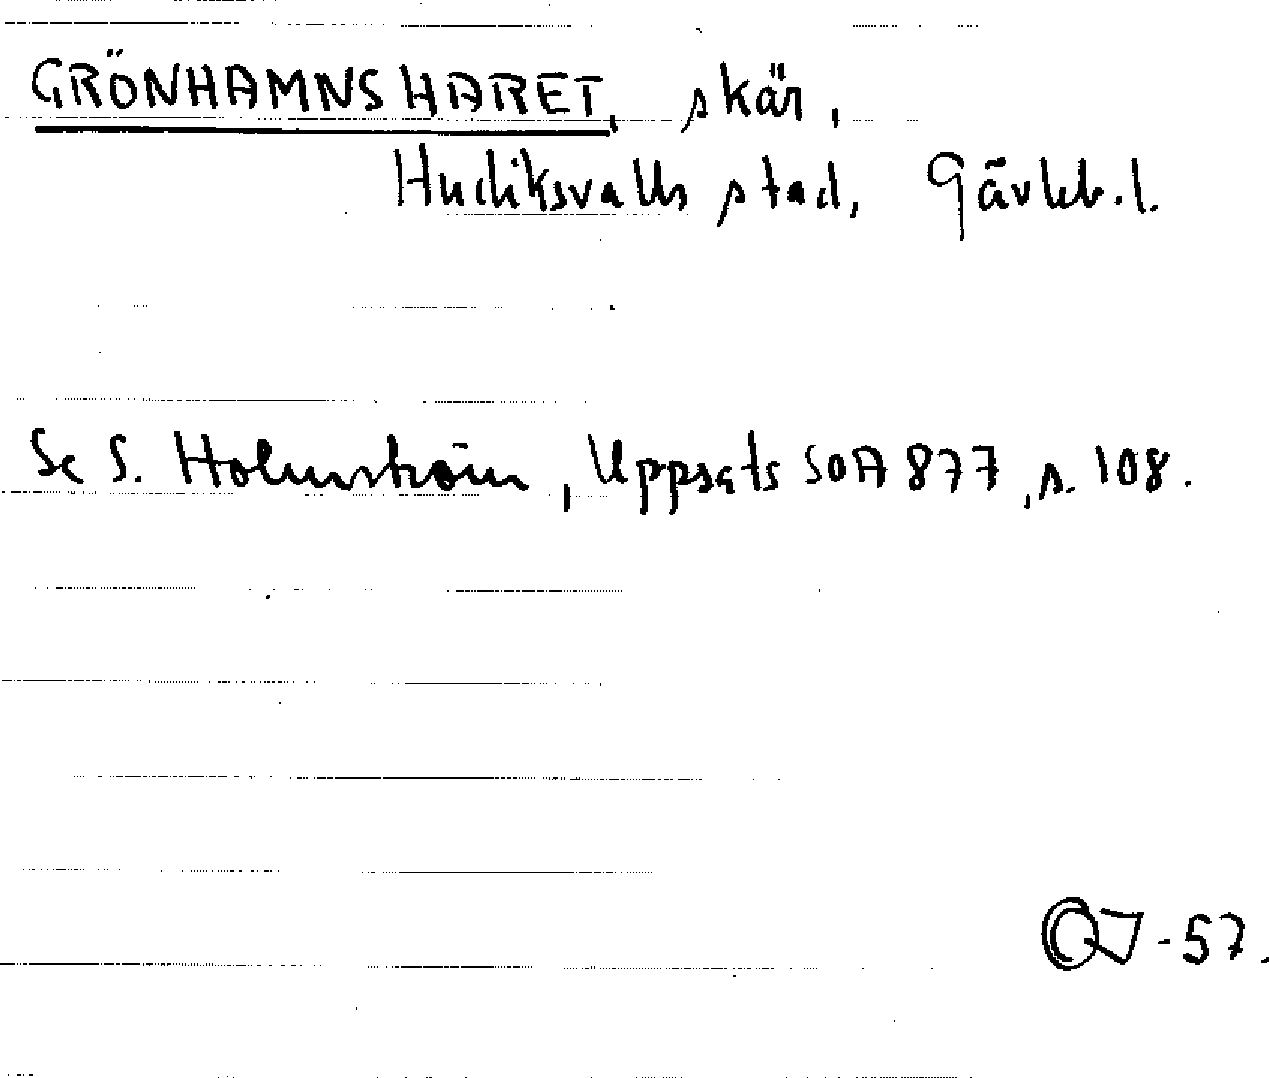 GRÖNHAMNSHARET, skär,
Hudiksvalls stad, Gävleb. l.
Se S. Holmström, Uppsats SOA 877, s. 108.
-57.